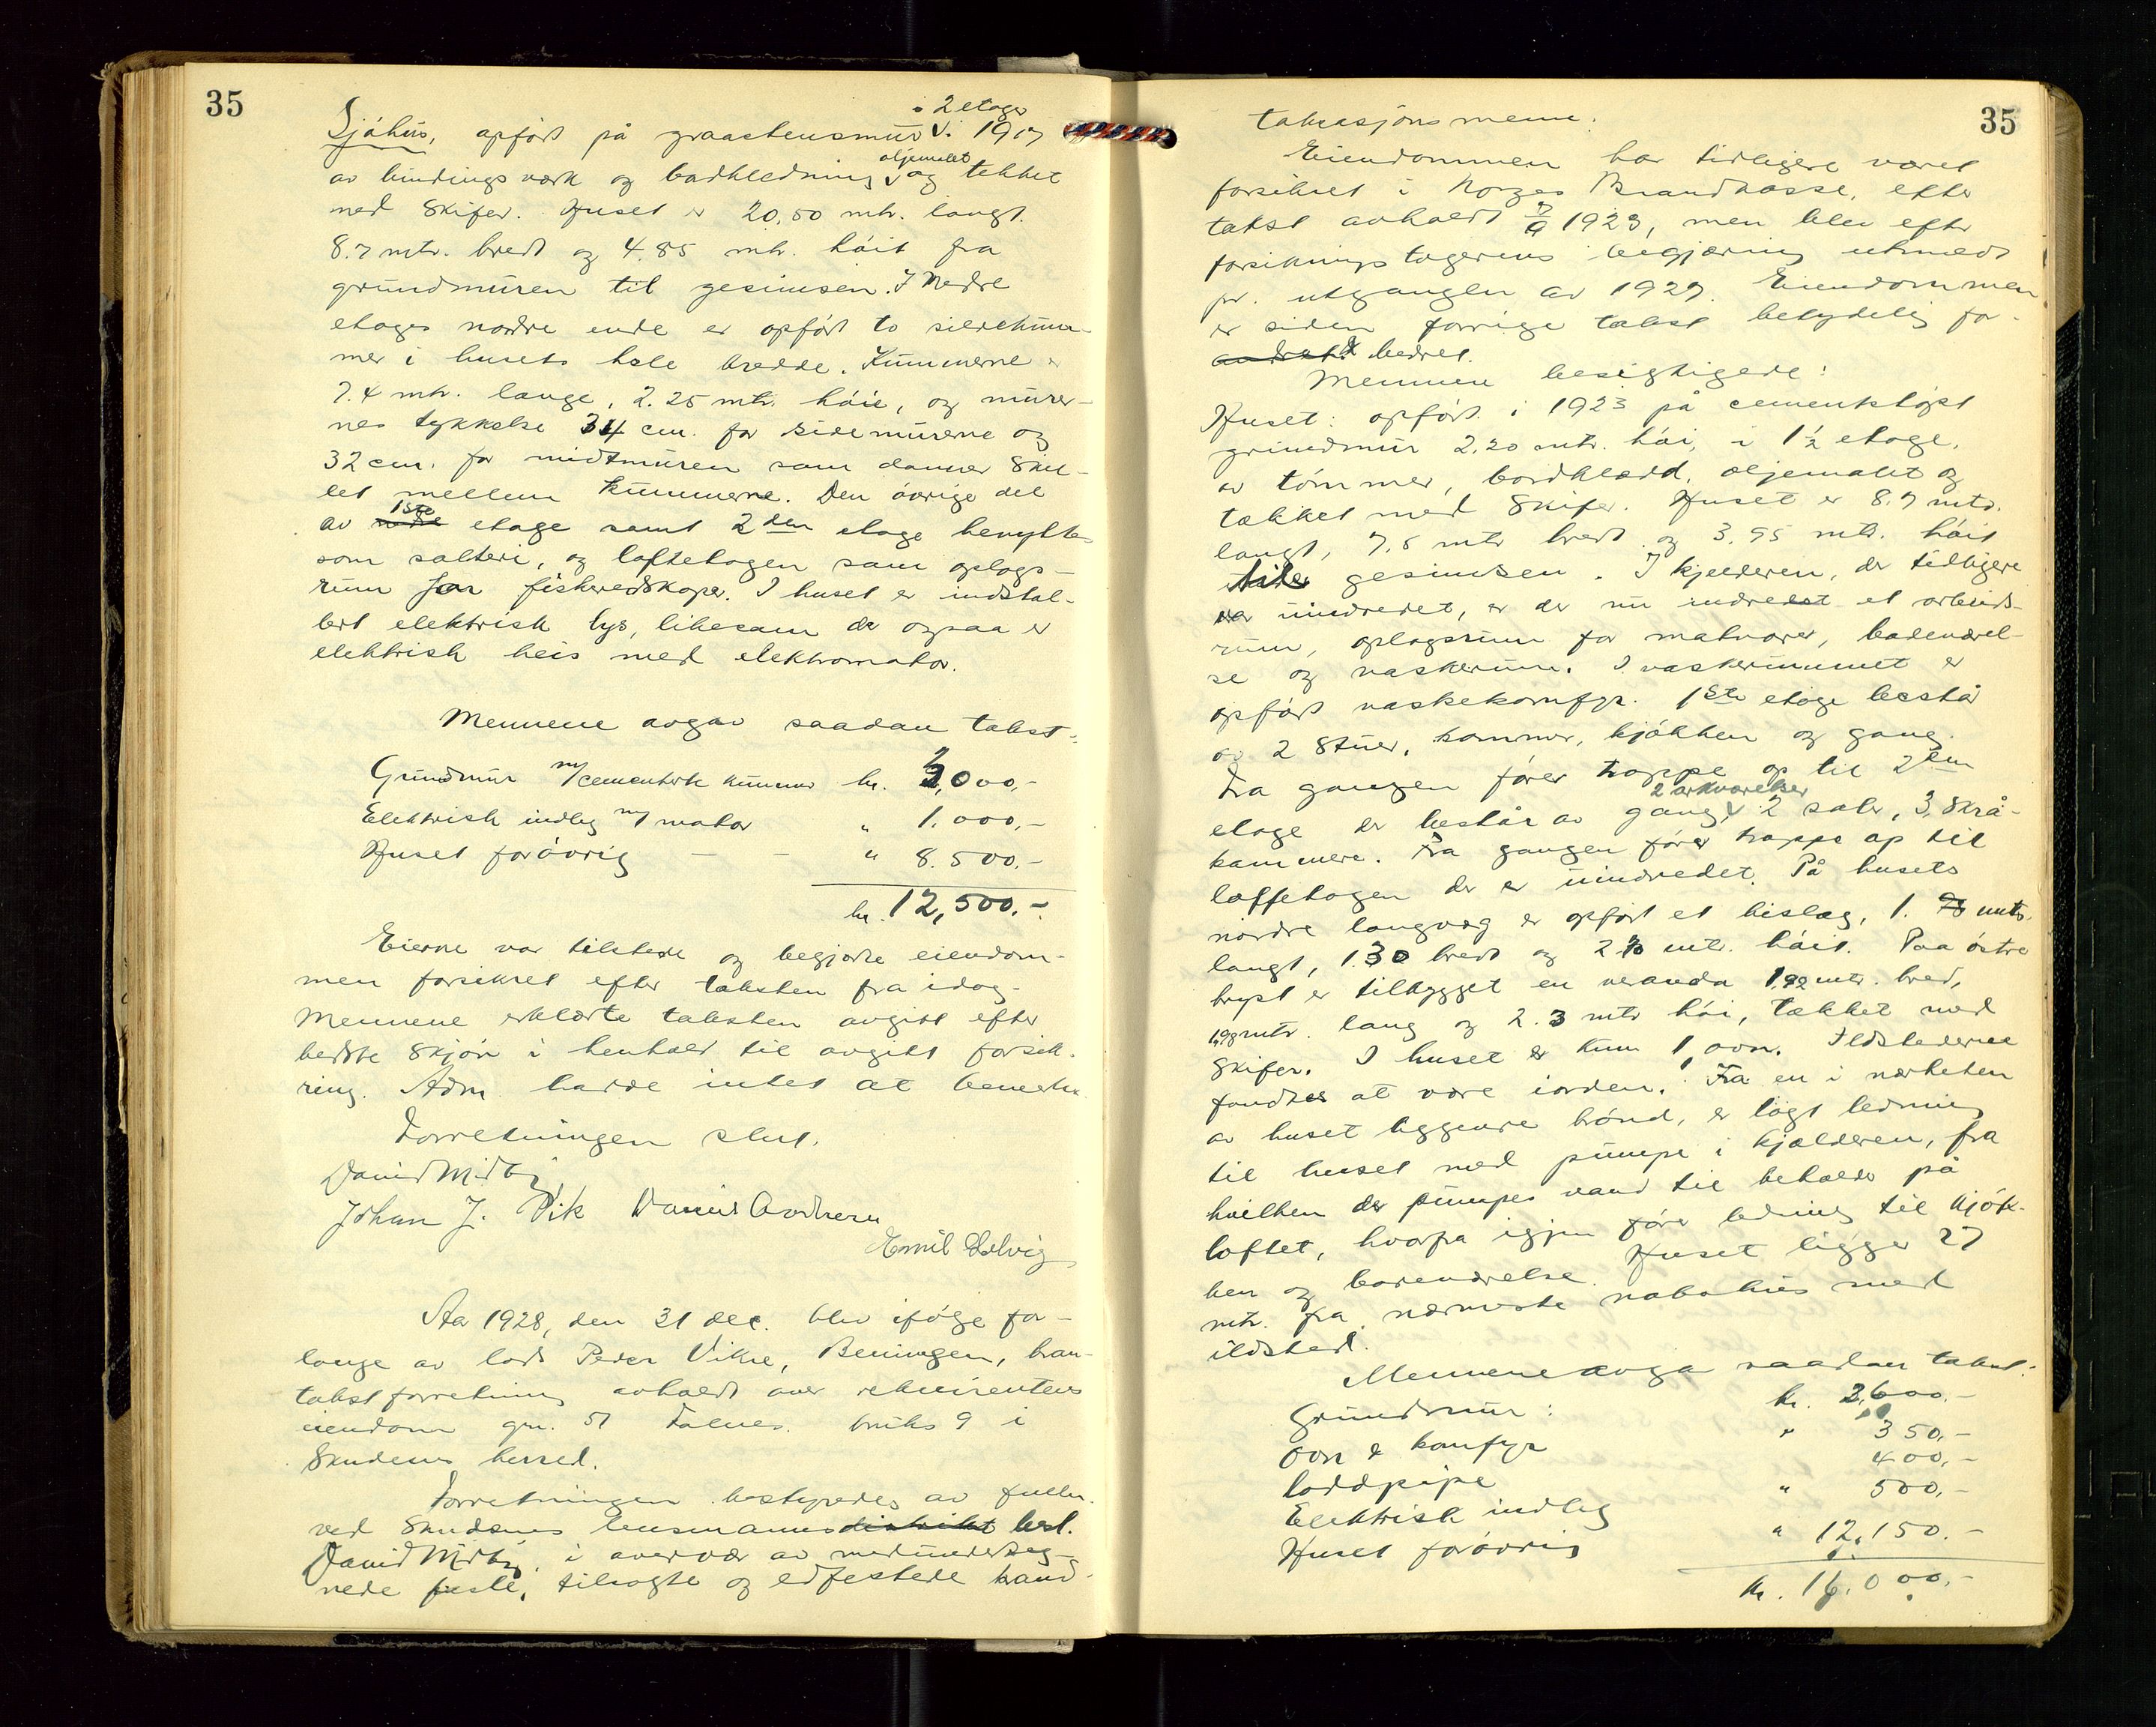 35
i 2 etager
Sjöhus, opfört på graastensmur V i 1917
oljemalet
av bindingsværk og bordklædning V og tekket
med Skifer. Huset er 20,50 mtr. langt.
8.7 mtr. bredt og 4.85 mtr. höit fra
grundmuren til gesimsen. I Nedre
etages nordre ende er opfört to sildekum-
mer i husets hele bredde. Kummerne er
7.4 mtr. lange, 2.25 mtr. höie, og murer-
nes tykkelse 34 cm. for sidemurerne og
32 cm. for midtmuren som danner Skil-
let mellem kummerne. Den övrige del
1ste
av nedre etage samt 2den etage benyttes
som salteri, og loftetagen som oplags-
rum for fiskeredskaper. I huset er indstal-
lert elektrisk lys, likesom der ogsaa er
elektrisk heis med elektromotor.
Mennene avgav saadan takst:
Grundmur m/cementerte kummer kr. 3,000,-
Elektrisk indleg m/ motor " 1.000,-
Huset forövrig - - " 8.500,-
kr. 12,500.-
Eierne var tilstede og begjærte eiendom-
men forsikret efter taksten fra idag.
Mennene erklærte taksten avgitt efter
bedste Skjön i henhold til avgitt forsik-
ring. Adm. hadde intet at bemerke
Forretningen slut.
David Midbö
Johan J. Vik Daniel Andersen
Emil Solvig
Aar 1928, den 31 dec. blev ifölge for-
lange av lods Peder Vikre, Beiningen, bran-
takstforretning avholdt over rekvirentens
eiendom gnr. 51 Falnes bruks 9 i
Skudenes herred.
Forretningen bestyredes av fullm.
ved Skudenes lensmannsdistrikt best.
David Midbö, i overvær av medunderteg-
nede faste, tilsagte og edfestede brand-
35
taksasjonsmenn:
Eiendommen har tidligere været
forsikret i Norges Brandkasse, efter
takst avholdt 7/9 1923, men blev efter
forsikringstagerens begjæring utmeldt
pr. utgangen av 1927. Eiendommen
er siden forrige takst betydelig for-
andret & bedret.
Mennene besigtigede:
Huset: opfört i 1923 på cementstöpt
grundmur 2,20 mtr. höi, i 1½ etage,
av tömmer, bordklædd, oljemalet og
tækket med Skifer. Huset er 8.7 mtr.
langt, 7,5 mtr bredt og 3,95 mtr. höit
til gesimsen. I kjelderen, der tidligere
var uindredet, er der nu indredet et arbeids-
rum, oplagsrum for matvarer, badeværel-
se og vaskerum. I vaskerummet er
opfört vaskekomfyr. 1ste etage består
av 2 Stuer, kammer, kjökken og gang.
Fra gangen förer trappe op til 2den
2 arkværelser
etage der består av gang, V 2 saler, 3 Skrå-
kammere. Fra gangen förer trappe op til
loffetagen der er uindredet. På husets
nordre langvæg er opfört et bislag, 1. 98 mtr.
langt, 1.30 bredt og 2.70 mtr. höit. Paa östre
bryst er tilbygget en veranda 1,92 mtr. bred,
1,98 mtr. lang og 2.3 mtr höi, tækket med
Skifer. I huset er kun 1 ovn. Ildstederne
fandtes at være iorden. Fra en i nærheten
av huset liggende brönd, er lagt ledning
til huset med pumpe i kjælderen, fra
hvilken der pumpes vand til beholder på
loftet, hvorfra igjen förer ledning til kjök-
ken og badeværelse. Huset ligger 27
mtr. fra nærmeste nabohus med
ildsted.
Mennene avga saadan takst:
Grundmur: kr. 2,600.-
Ovn & komfyr " 350,-
loddpipe 400,-
Elektrisk indleg " 500,-
Huset forövrig " 12.150.-
kr. 16.000,-